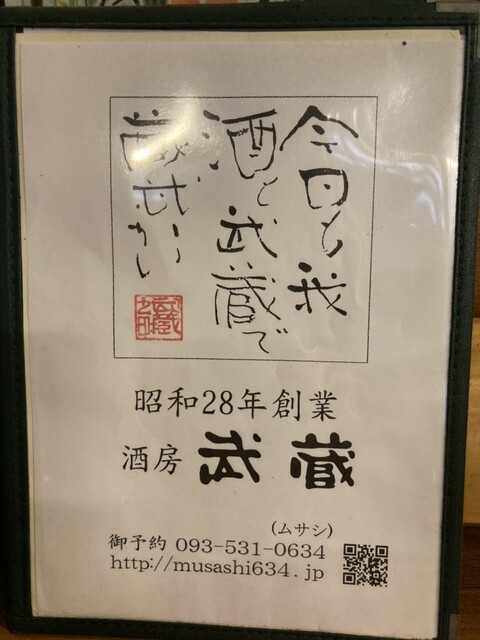 今日と我
酒と武蔵で
昭和28年創業
酒房 武蔵
(ムサシ)
御予約 093-531-0634
http://musashi634.jp